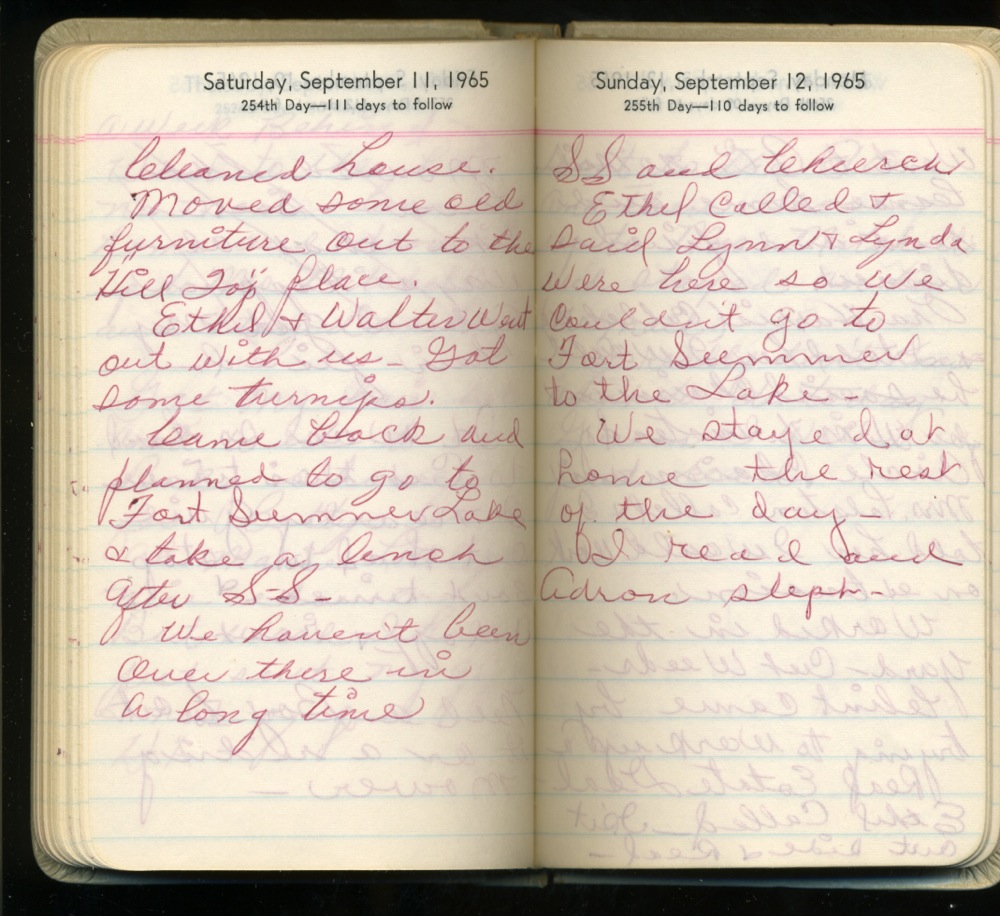 Saturday, September 11, 1965
254th Day—111 days to follow
Cleaned house.
Moved some old
furniture out to the
"Hill Top" place.
Ethel & Walter Went
out with us - Got
some turnips.
Came back and
planned to go to
Fort Sumner Lake
& take a lunch
after S-S-
We haven't been
Over there in
a long time
Sunday, September 12, 1965
255th Day—110 days to follow
SS and Church
Ethel Called &
said Lynn & Lynda
were here so we
couldn't go to
Fort Sumner
to the Lake -
We stayed at
home the rest
of the day -
I read and
Adron sleph -